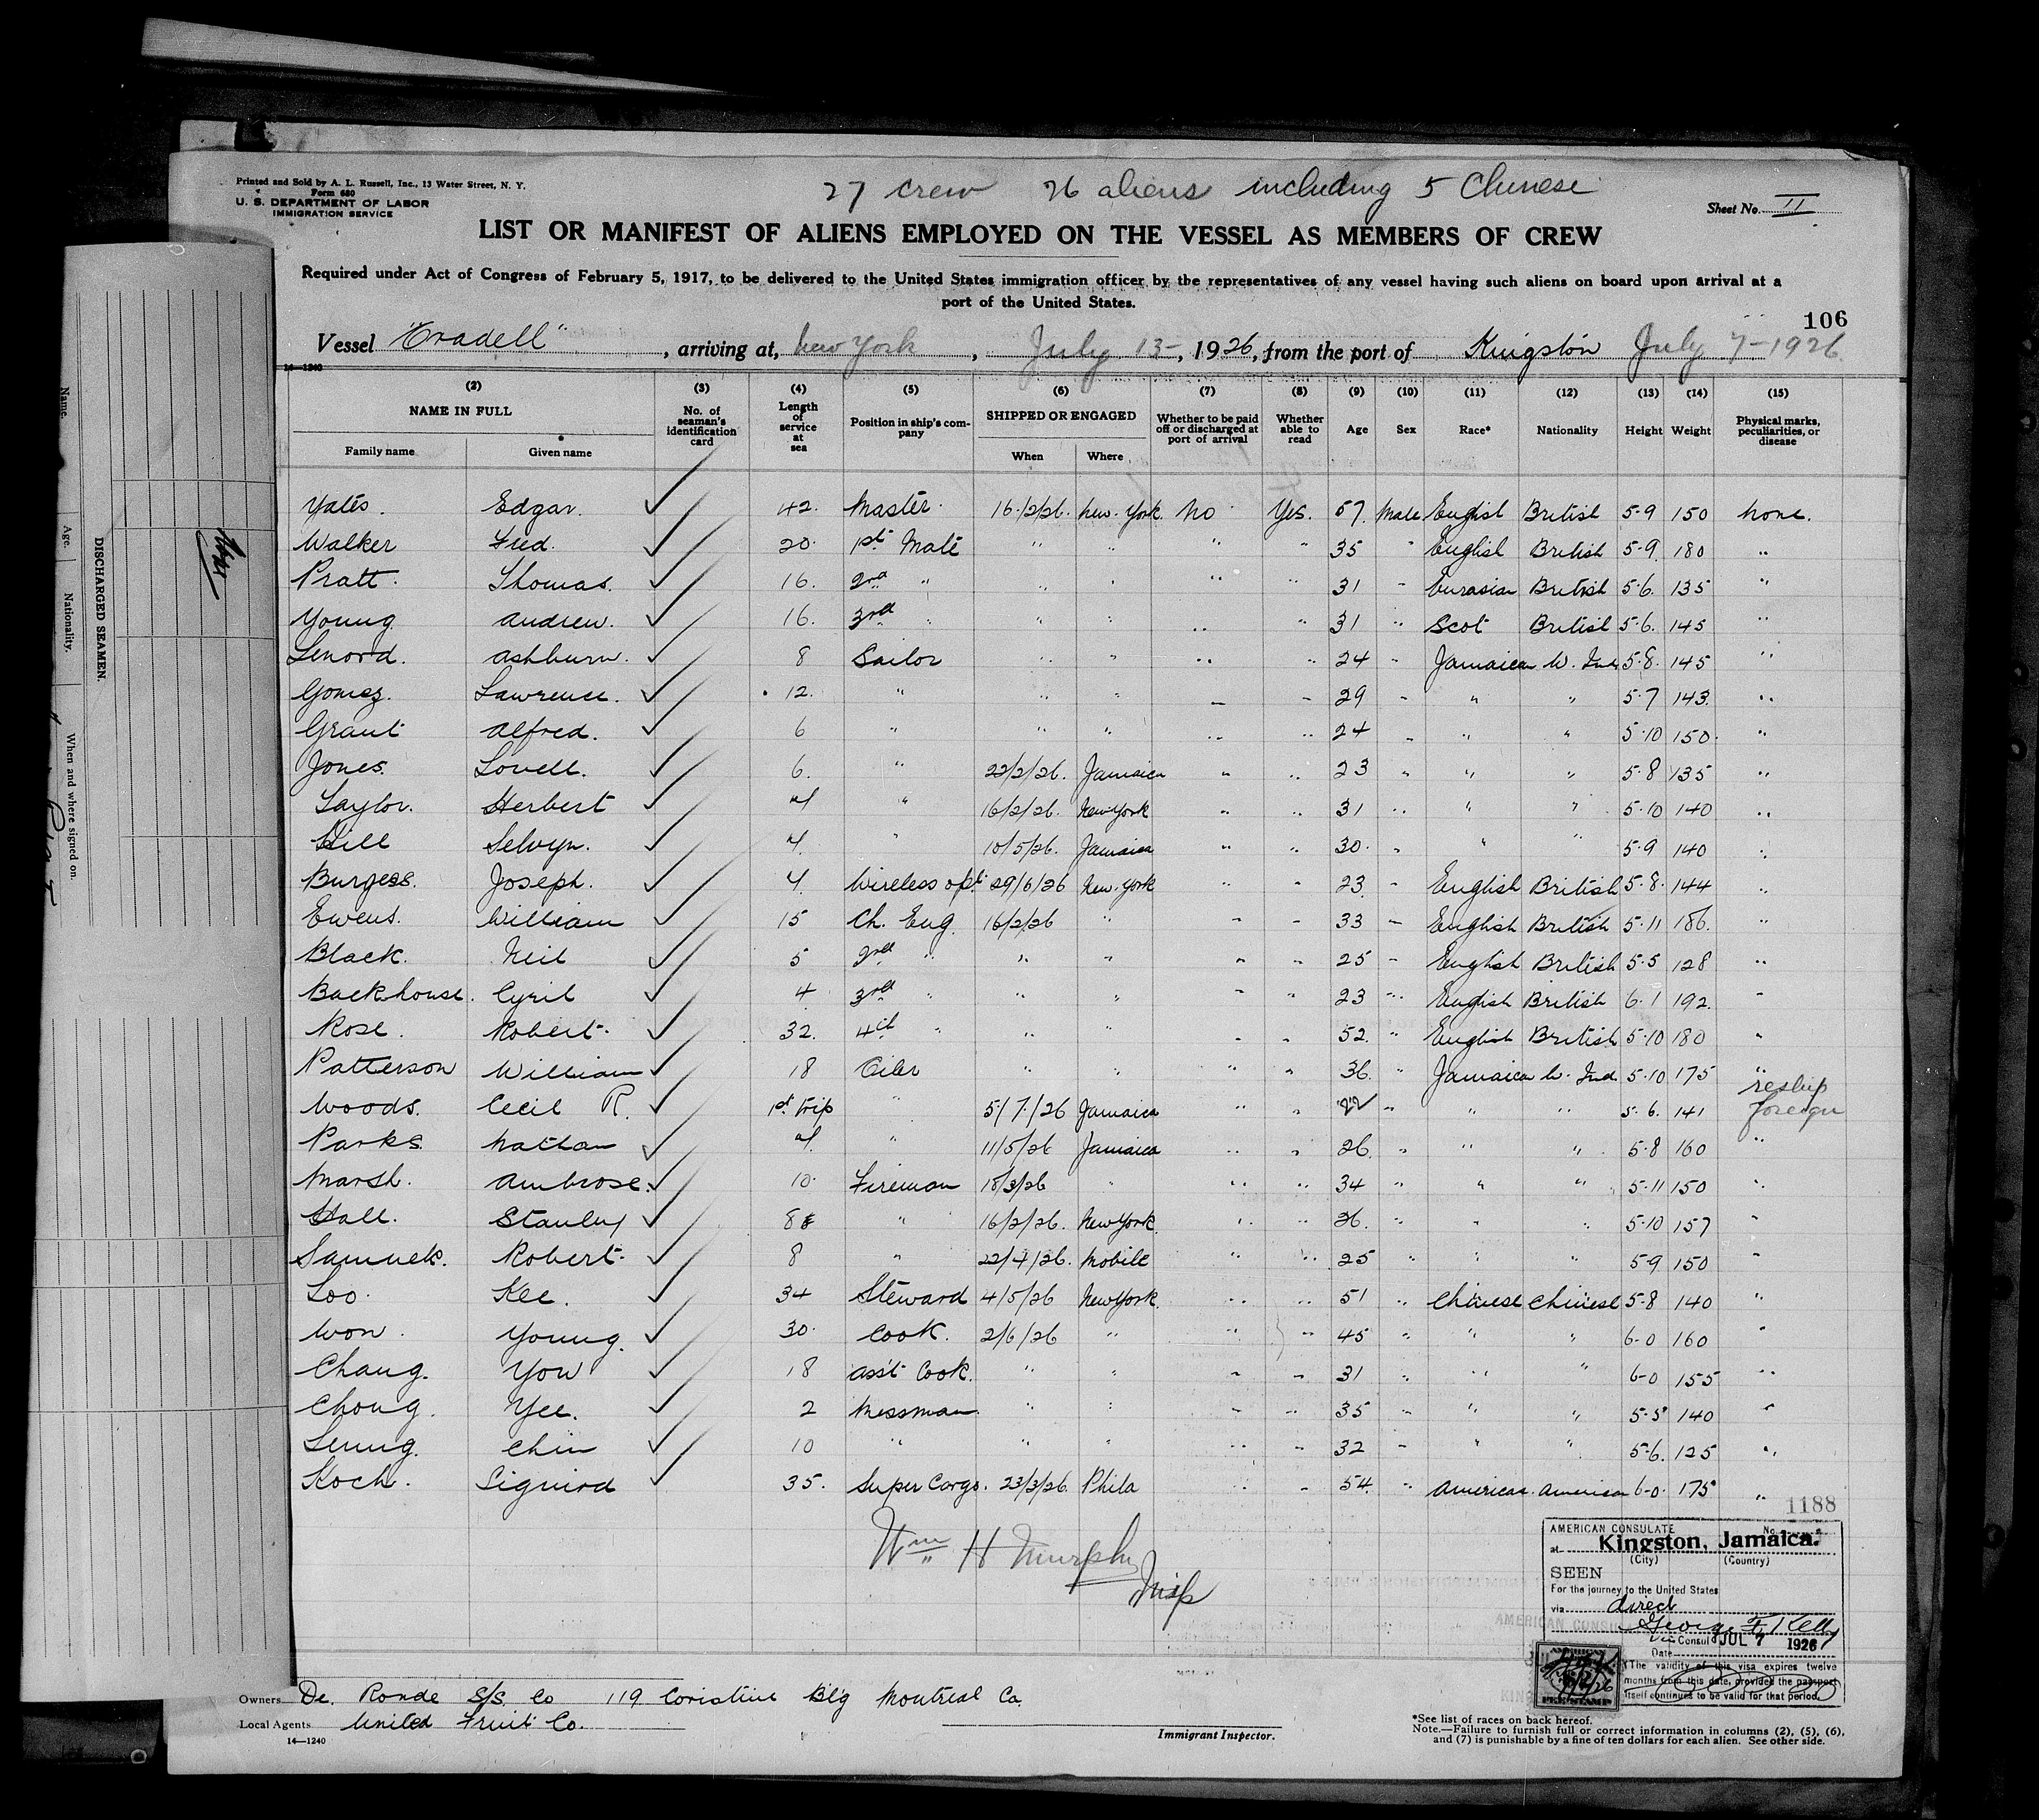 Printed and Sold by A. L. Russell, Inc., 13 Water Street, N. Y.
Form 680
U. S. DEPARTMENT OF LABOR
IMMIGRATION SERVICE
27 crew 26 aliens including 5 Chinese
Sheet No. II
LIST OR MANIFEST OF ALIENS EMPLOYED ON THE VESSEL AS MEMBERS OF CREW
Required under Act of Congress of February 5, 1917, to be delivered to the United States immigration officer by the representatives of any vessel having such aliens on board upon arrival at a
port of the United States.
106
Vessel "Oradell", arriving at, New York, July 13-, 1926, from the port of Kingston July 7-1926
14—1240
(2) (3) (4) (5) (6) (7) (8) (9) (10) (11) (12) (13) (14) (15)
NAME IN FULL No. of seaman's identification card Length of service at sea Position in ship's company SHIPPED OR ENGAGED Whether to be paid off or discharged at port of arrival Whether able to read Age Sex Race* Nationality Height Weight Physical marks, peculiarities, or disease
Family name Given name When Where
Yates. Edgar. ✓ 42. Master. 16/2/26. New. York. No Yes. 57. Male English British 5-9 150 None.
Walker Fred. ✓ 20. 1st Mate " " " " 35 " English British 5-9. 180 "
Pratt. Thomas. ✓ 16. 2nd " " " " " 31 - Eurasian British 5-6. 135 "
Young Andrew. ✓ 16. 3rd " " " " " 31 " Scot British 5-6. 145 "
Lenord. Ashburn. ✓ 8 Sailor " " " " 24 - Jamaica W. Ind 5-8. 145 "
Gomez. Lawrence. ✓ 12. " " " " " 29 - " " 5-7 143. "
Grant Alfred. ✓ 6 " " " " " 24 - " " 5-10 150. "
Jones. Lovell. ✓ 6. " 22/2/26. Jamaica " " 23 " " " 5-8 135 "
Taylor. Herbert ✓ 4 " 16/2/26. New York " " 31 " " " 5-10 140 "
Hill Selvyn. ✓ 4. " 10/5/26. Jamaica " " 30. " " " 5-9 140 "
Burgess. Joseph. ✓ 4. Wireless opt. 29/6/26 New. York " " 23 - English British 5-8. 144 "
Ewens. William ✓ 15 Ch. Eng. 16/2/26 " " " 33 - English British 5-11 186. "
Black. Neil ✓ 5 2nd " " " " " 25 - English British 5-5 128 "
Backhouse. Cyril ✓ 4 3rd " " " " " 23 " English British 6-1 192. "
Rose. Robert. ✓ 32. 4th " " " " " 52. " English British 5-10 180 "
Patterson William ✓ 18 Oiler " " " " 36. " Jamaica W. Ind. 5-10 175 "
Woods. Cecil R. ✓ 1st trip " 5/7/26 Jamaica " " 22 " " " 5-6. 141 reship foreign
Parks. Nathan ✓ 4. " 11/5/26 Jamaica " " 26. " " " 5-8 160 "
Marsh. Ambrose. ✓ 10. Fireman 18/3/26 " " " 34 " " " 5-11 150 "
Hall. Stanley ✓ 8 " 16/2/26. New York " " 36. " " " 5-10 157 "
Samuek. Robert. ✓ 8 " 22/4/26. Mobile " " 25 " " " 5-9 150 "
Loo. Kee. ✓ 34 Steward 4/5/26 New York. " " 51 " Chinese Chinese 5-8 140 "
Won. Young. ✓ 30. Cook. 2/6/26 " " " 45 " " " 6-0 160 "
Chang. You ✓ 18 Ass't Cook. " " " " 31 " " " 6-0 155 "
Chong. Yee. ✓ 2 Messman. " " " " 35 " " " 5-5 140 "
Leung. Chin ✓ 10 " " " " " 32 - " " 5-6. 125 "
Koch. Sigurd ✓ 35. Super Cargo. 23/3/26. Phila " " 54. " American American 6-0. 175 "
1188
Wm H Murphy
Insp
AMERICAN CONSULATE No.
at Kingston, Jamaica.
(City) (Country)
SEEN
For the journey to the United States
via direct
George F. Kelly
Vice Consul
JUL 7 1926
Date
The validity of this visa expires twelve
months from this date, provided the passport
itself continues to be valid for that period.
Owners De. Ronde S/S. Co 119 Coristine Bl'g Montreal Ca.
Local Agents United Fruit Co.
14—1240
Immigrant Inspector.
*See list of races on back hereof.
Note.—Failure to furnish full or correct information in columns (2), (5), (6),
and (7) is punishable by a fine of ten dollars for each alien. See other side.
DISCHARGED SEAMEN.
Name. Age. Nationality. When and where signed on.